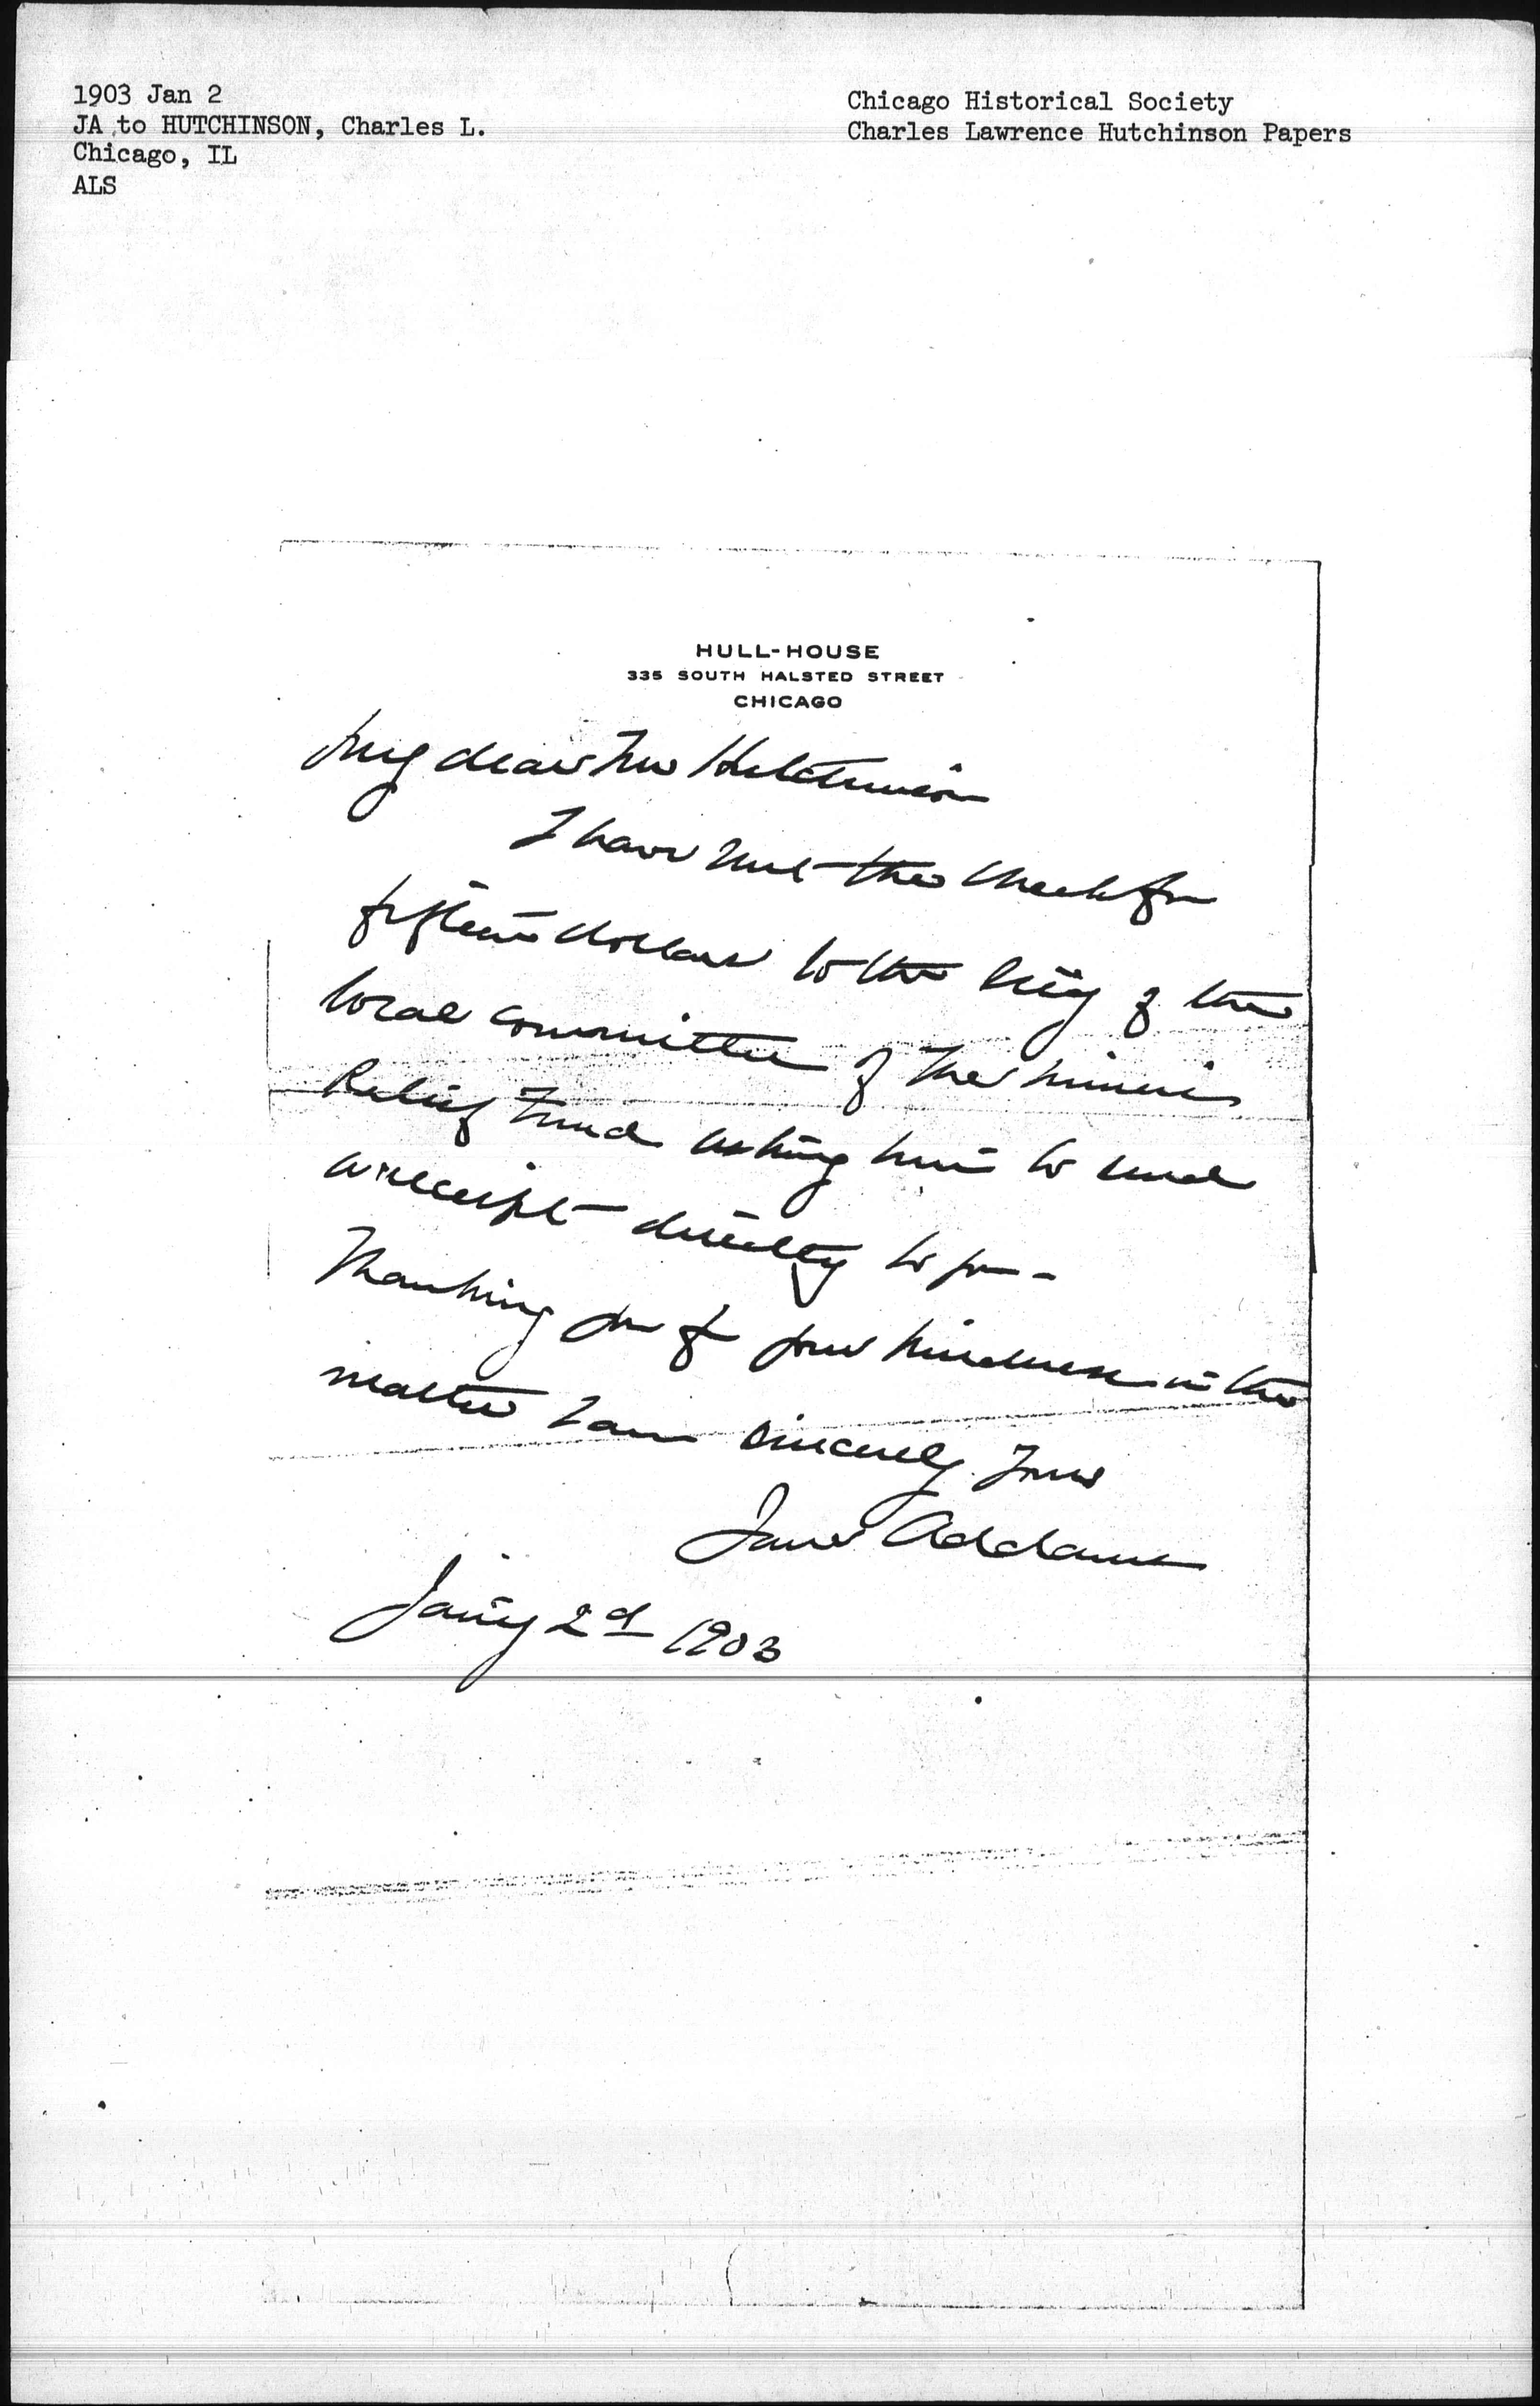 1903 Jan 2
JA to HUTCHINSON, Charles L.
Chicago, IL
ALS
Chicago Historical Society
Charles Lawrence Hutchinson Papers
HULL-HOUSE
335 SOUTH HALSTED STREET
CHICAGO
My dear Mr Hutchinson
I have sent the check for
fifteen dollars to the Sec'y of the
local committee of the miners
Relief Fund asking him to send
a receipt directly to you -
Thanking you for your kindness in the
matter I am sincerely yours
Jane Addams
Jan'y 2d 1903